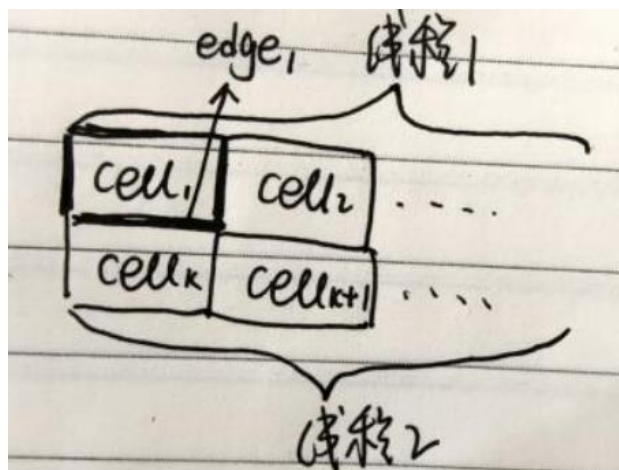 edge1 线程1
cell1 cell2 .....
cellk cellk+1 ....
线程2